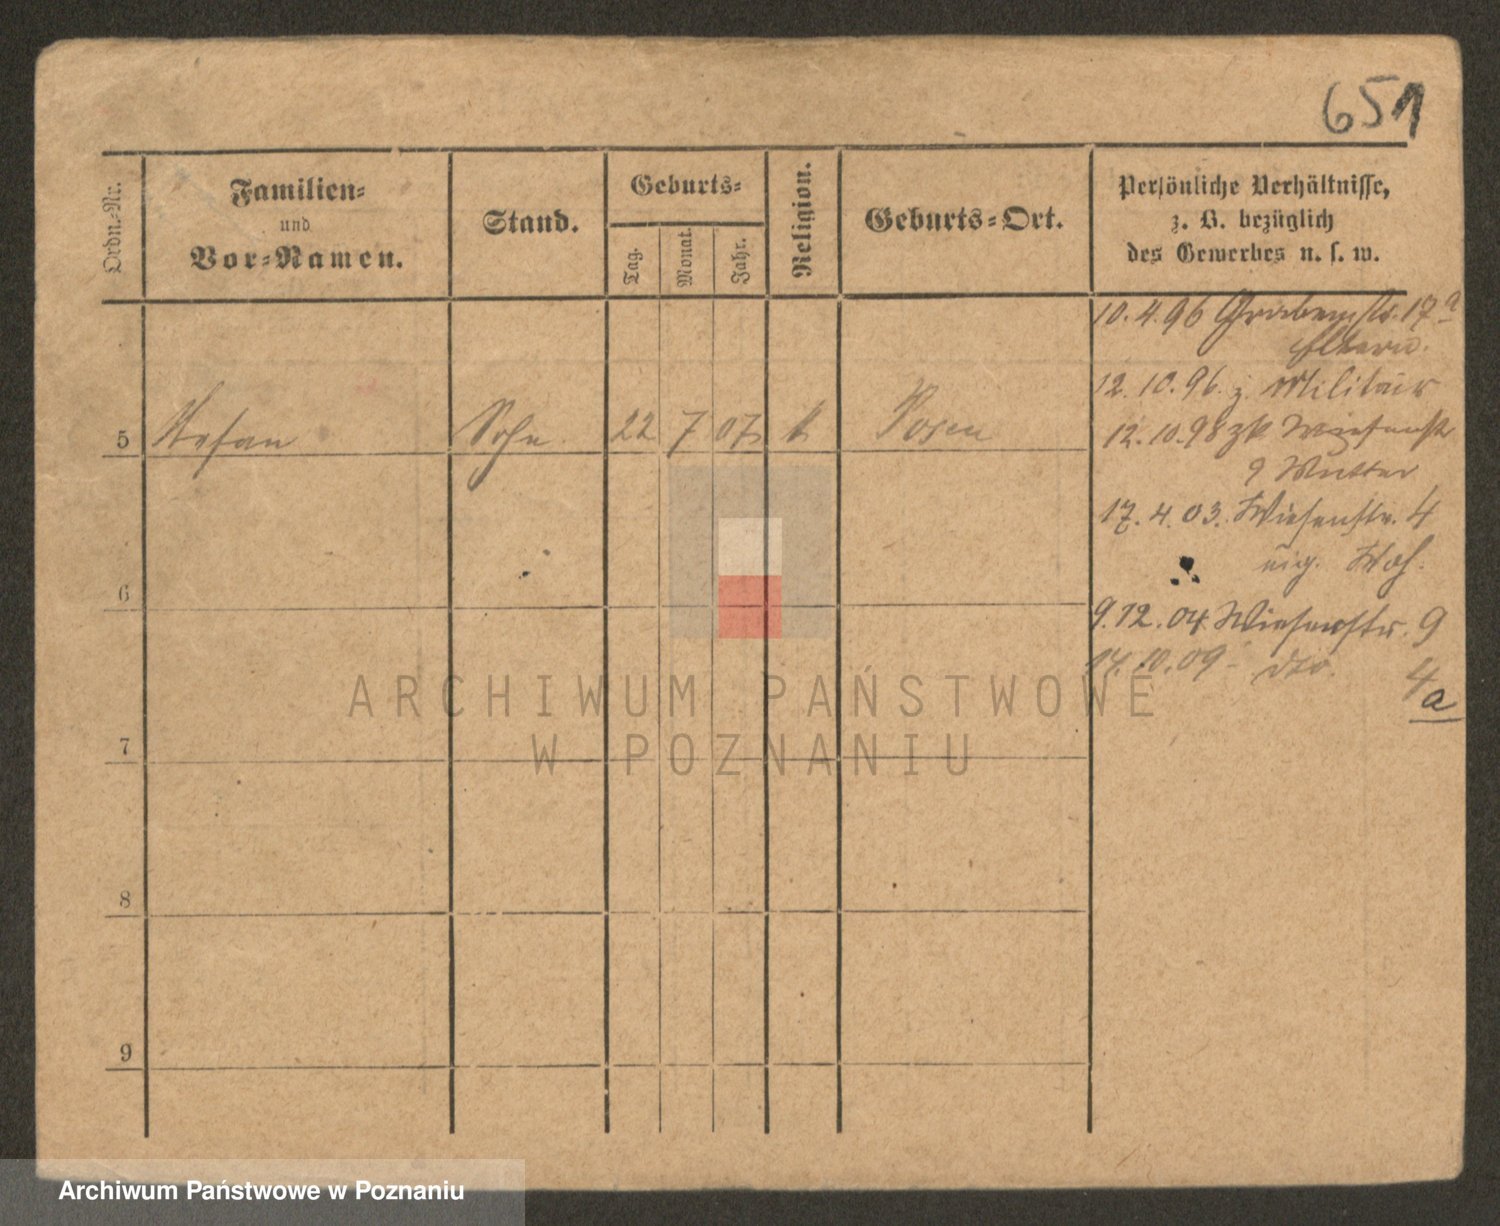 651
Ordn.-Nr.
Familien-
und
Vor-Namen.
Stand.
Geburts-
Tag.
Monat.
Jahr.
Religion.
Geburts-Ort.
Persönliche Verhältnisse,
z. B. bezüglich
des Gewerbes u. s. w.
10.4.96 Grabenstr. 17 a
Eltern.
12.10.96. z. Militair
5 Stefan Sohn 22 7 07 k Posen
12.10.98 zk Wiesenstr
9 Mutter
17.4.03. Wiesenstr. 4
eig. Woh.
6
9.12.04. Wiesenstr. 9
14.10.09 - dto. 4a
7
8
9
ARCHIWUM PAŃSTWOWE
W POZNANIU
Archiwum Państwowe w Poznaniu